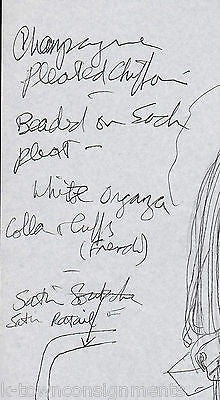 Champagne
Pleated Chiffon
—
Beaded on Each
pleat —
White Organza
Collar + Cuffs
(French)
—
Satin
Satin Rattail =
k-townconsignments